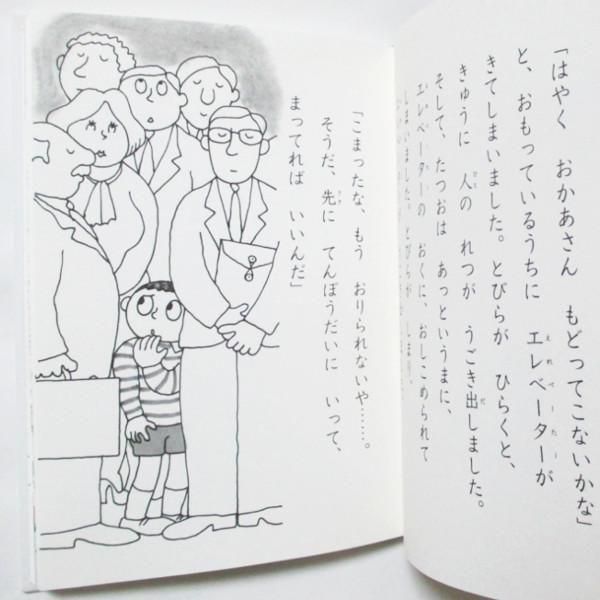 「はやく　おかあさん　もどってこないかな」
と、おもっているうちに　エレベーターが
きてしまいました。とびらが　ひらくと、
きゅうに　人の　れつが　うごき出しました。
そして、たつおは　あっというまに、
エレベーターの　おくに、おしこめられて
しまいました。とびらが　しまり、
「こまったな、もう　おりられないや……。
そうだ、先に　てんぼうだいに　いって、
まってれば　いいんだ」